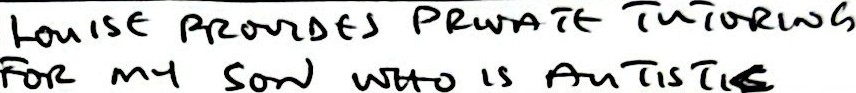 LOUISE PROVIDES PRIVATE TUTORING
FOR MY SON WHO IS AUTISTIC